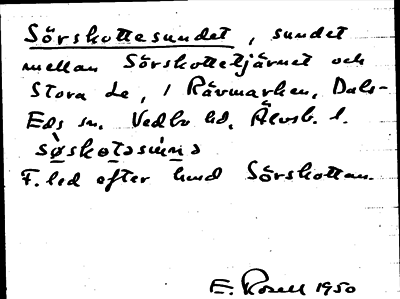 Sörskottesundet, sundet
mellan Sörskottetjärnet och
Stora Le, i Rävmarken, Dals-
Eds sn. Vedbo hd, Älvsb. l.
sø̀skotəsùnə
F. led efter hmd Sörskottan.
E. Rosell 1950